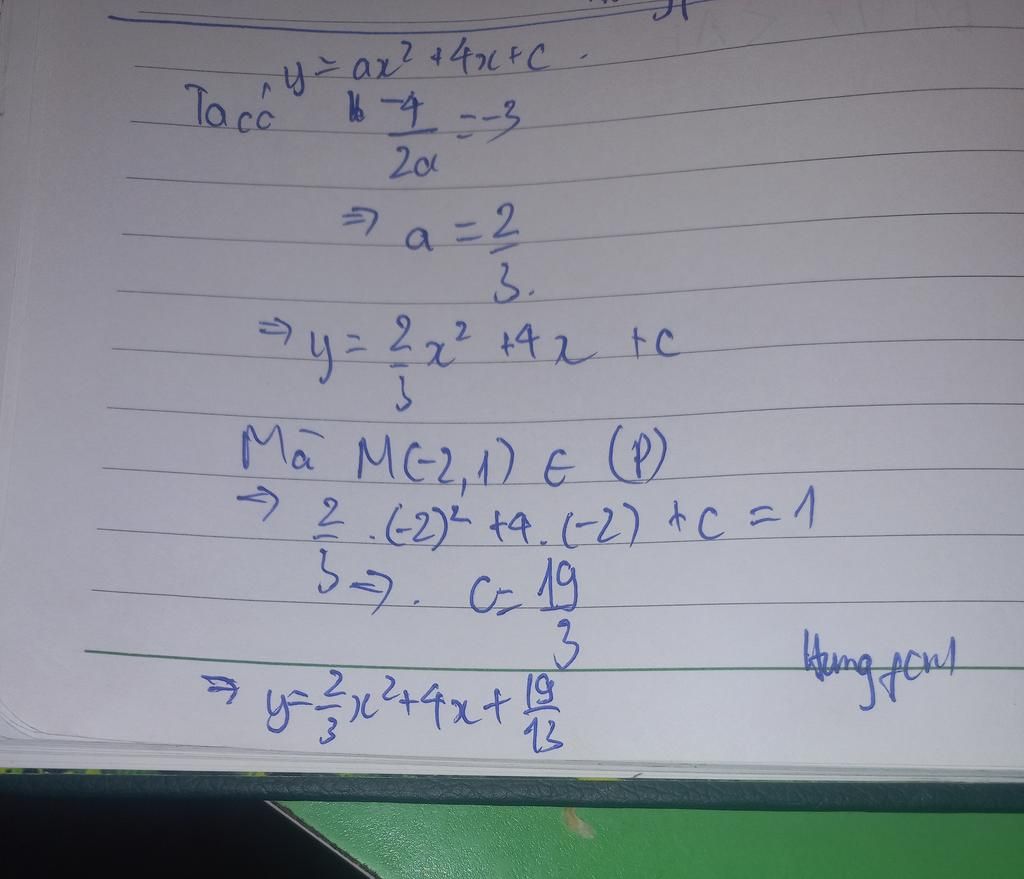 y = ax² + 4x + c .
Ta có -4/2a = -3
⇒ a = 2/3.
⇒ y = 2/3 x² + 4x + c
Mà M(-2,1) ∈ (P)
⇒ 2/3 . (-2)² + 4. (-2) + c = 1
⇒ . c = 19/3
⇒ y = 2/3 x² + 4x + 19/13